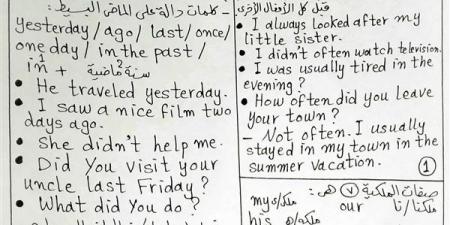 - كلمات دالة على الماضي البسيط:
yesterday / ago / last / once /
one day / in the past /
in + سنة ماضية
• He traveled yesterday.
• I saw a nice film two
days ago.
• She didn't help me.
• Did You visit your
uncle last Friday?
• What did You do?
قبل كل الأفعال الأخرى
• I always looked after my
little sister.
• I didn't often watch television.
• I was usually tired in the
evening?
• How often did you leave
your town?
- Not often. I usually
stayed in my town in the
summer vacation.
1
صفات الملكية (٧) هي:
my ملكي/ي our ملكنا/نا
his ملكه/ه